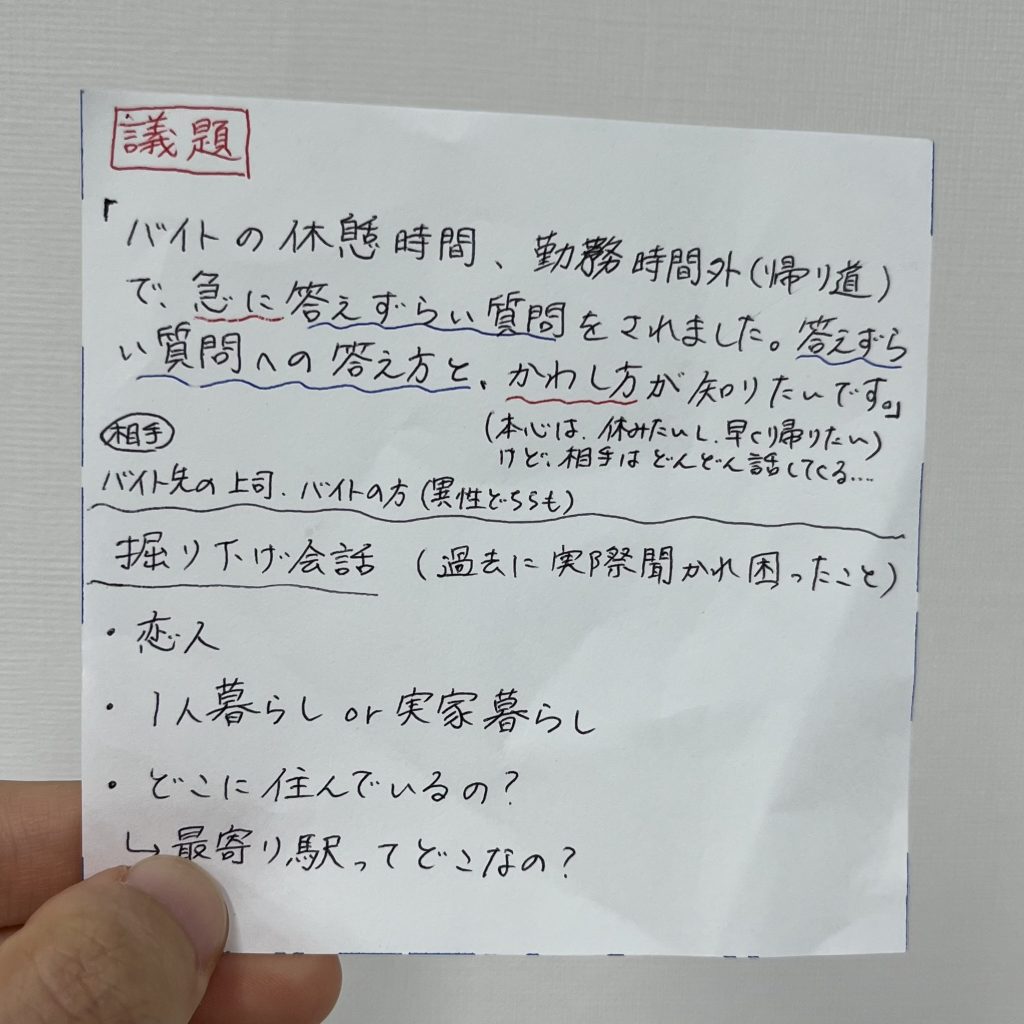 議題
「バイトの休憩時間、勤務時間外(帰り道)
で、急に答えずらい質問をされました。答えずら
い質問への答え方と、かわし方が知りたいです。」
(本心は、休みたいし、早くり帰りたい)
けど、相手はどんどん話してくる....
相手
バイト先の上司、バイトの方(異性どちらも)
掘り下げ会話 (過去に実際聞かれ困ったこと)
・恋人
・1人暮らし or 実家暮らし
・どこに住んでいるの?
↳最寄り駅ってどこなの?